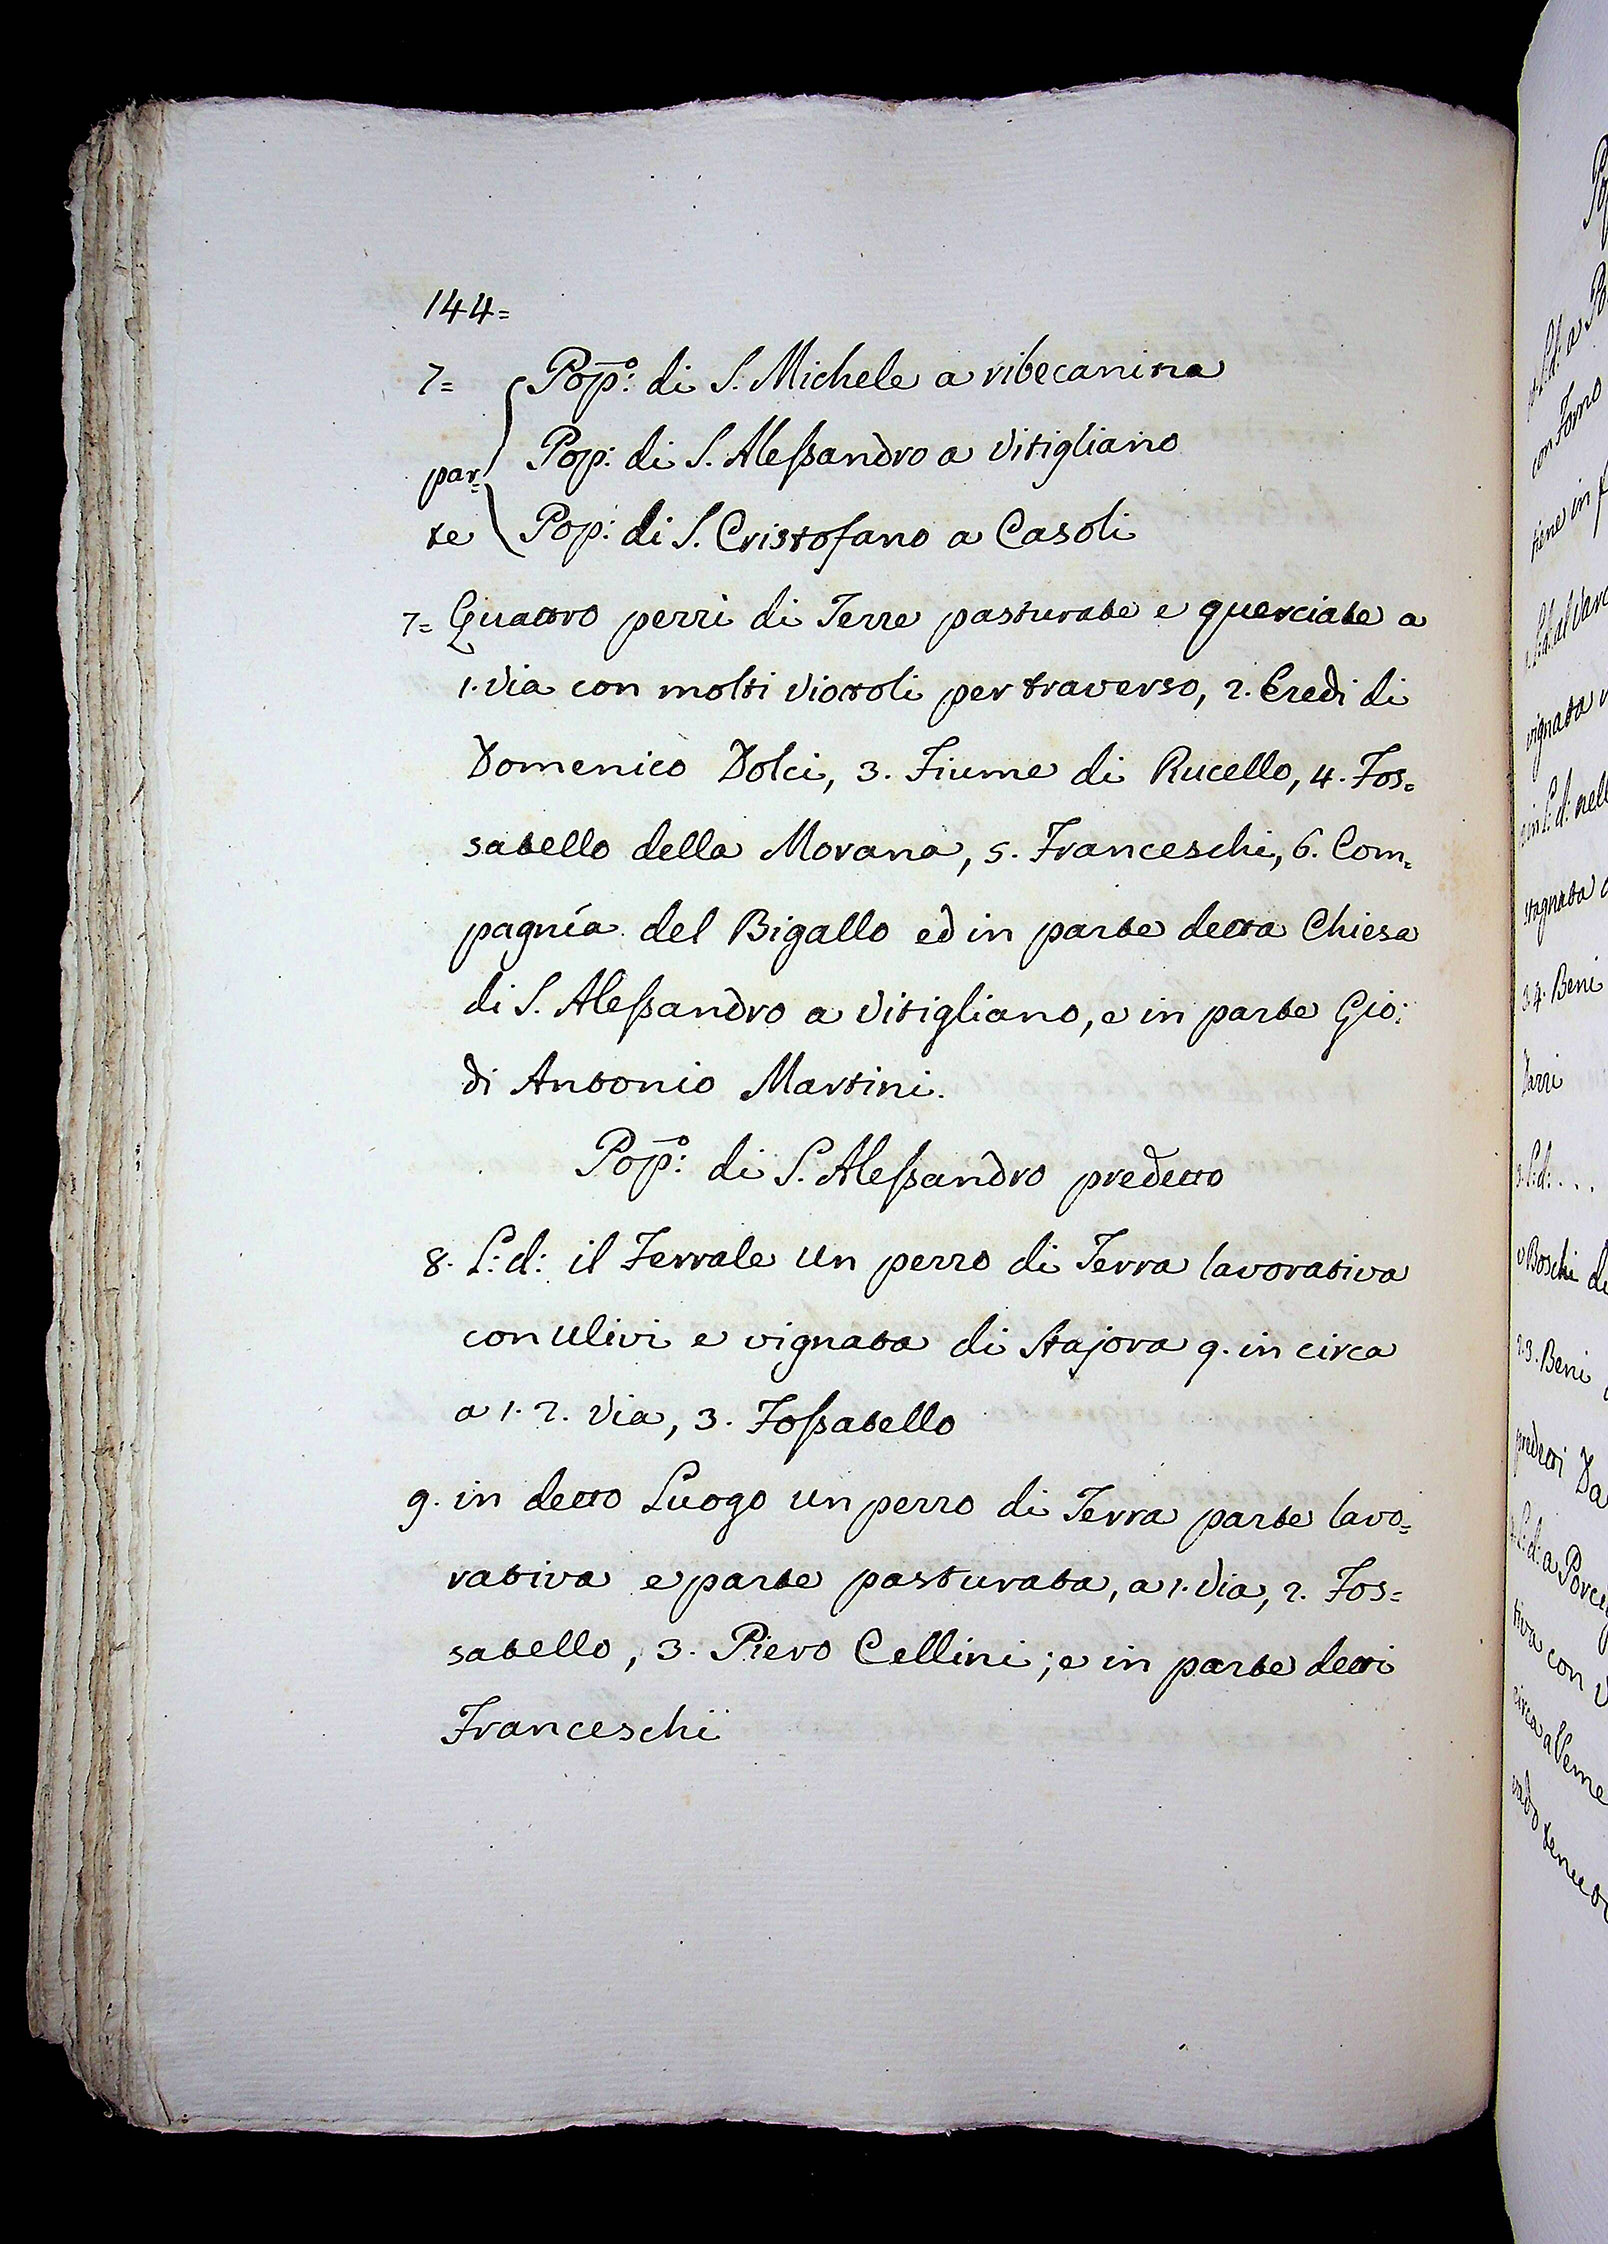 144=
7= Pop̄o: di S. Michele a ribecanina
par= Pop: di S. Alessandro a Vitigliano
te Pop: di S. Cristofano a Casoli
7= Quattro pezzi di Terre pasturate e querciate a
1. Via con molti Viottoli per traverso, 2. Eredi di
Domenico Dolci, 3. Fiume di Rucello, 4. Fos=
satello della Morana, 5. Franceschi, 6. Com=
pagnía del Bigallo ed in parte detta Chiesa
di S. Alessandro a Vitigliano, e in parte Gio:
di Antonio Martini.
Pop̄o: di S. Alessandro predetto
8. L: d: il Ferrale Un pezzo di Terra lavorativa
con Ulivi e vignata di Stajora 9. in circa
a 1. 2. Via, 3. Fossatello
9. in detto Luogo un pezzo di Terra parte lavo=
rativa e parte pasturata, a 1. Via, 2. Fos=
satello, 3. Piero Cellini; e in parte detti
Franceschi